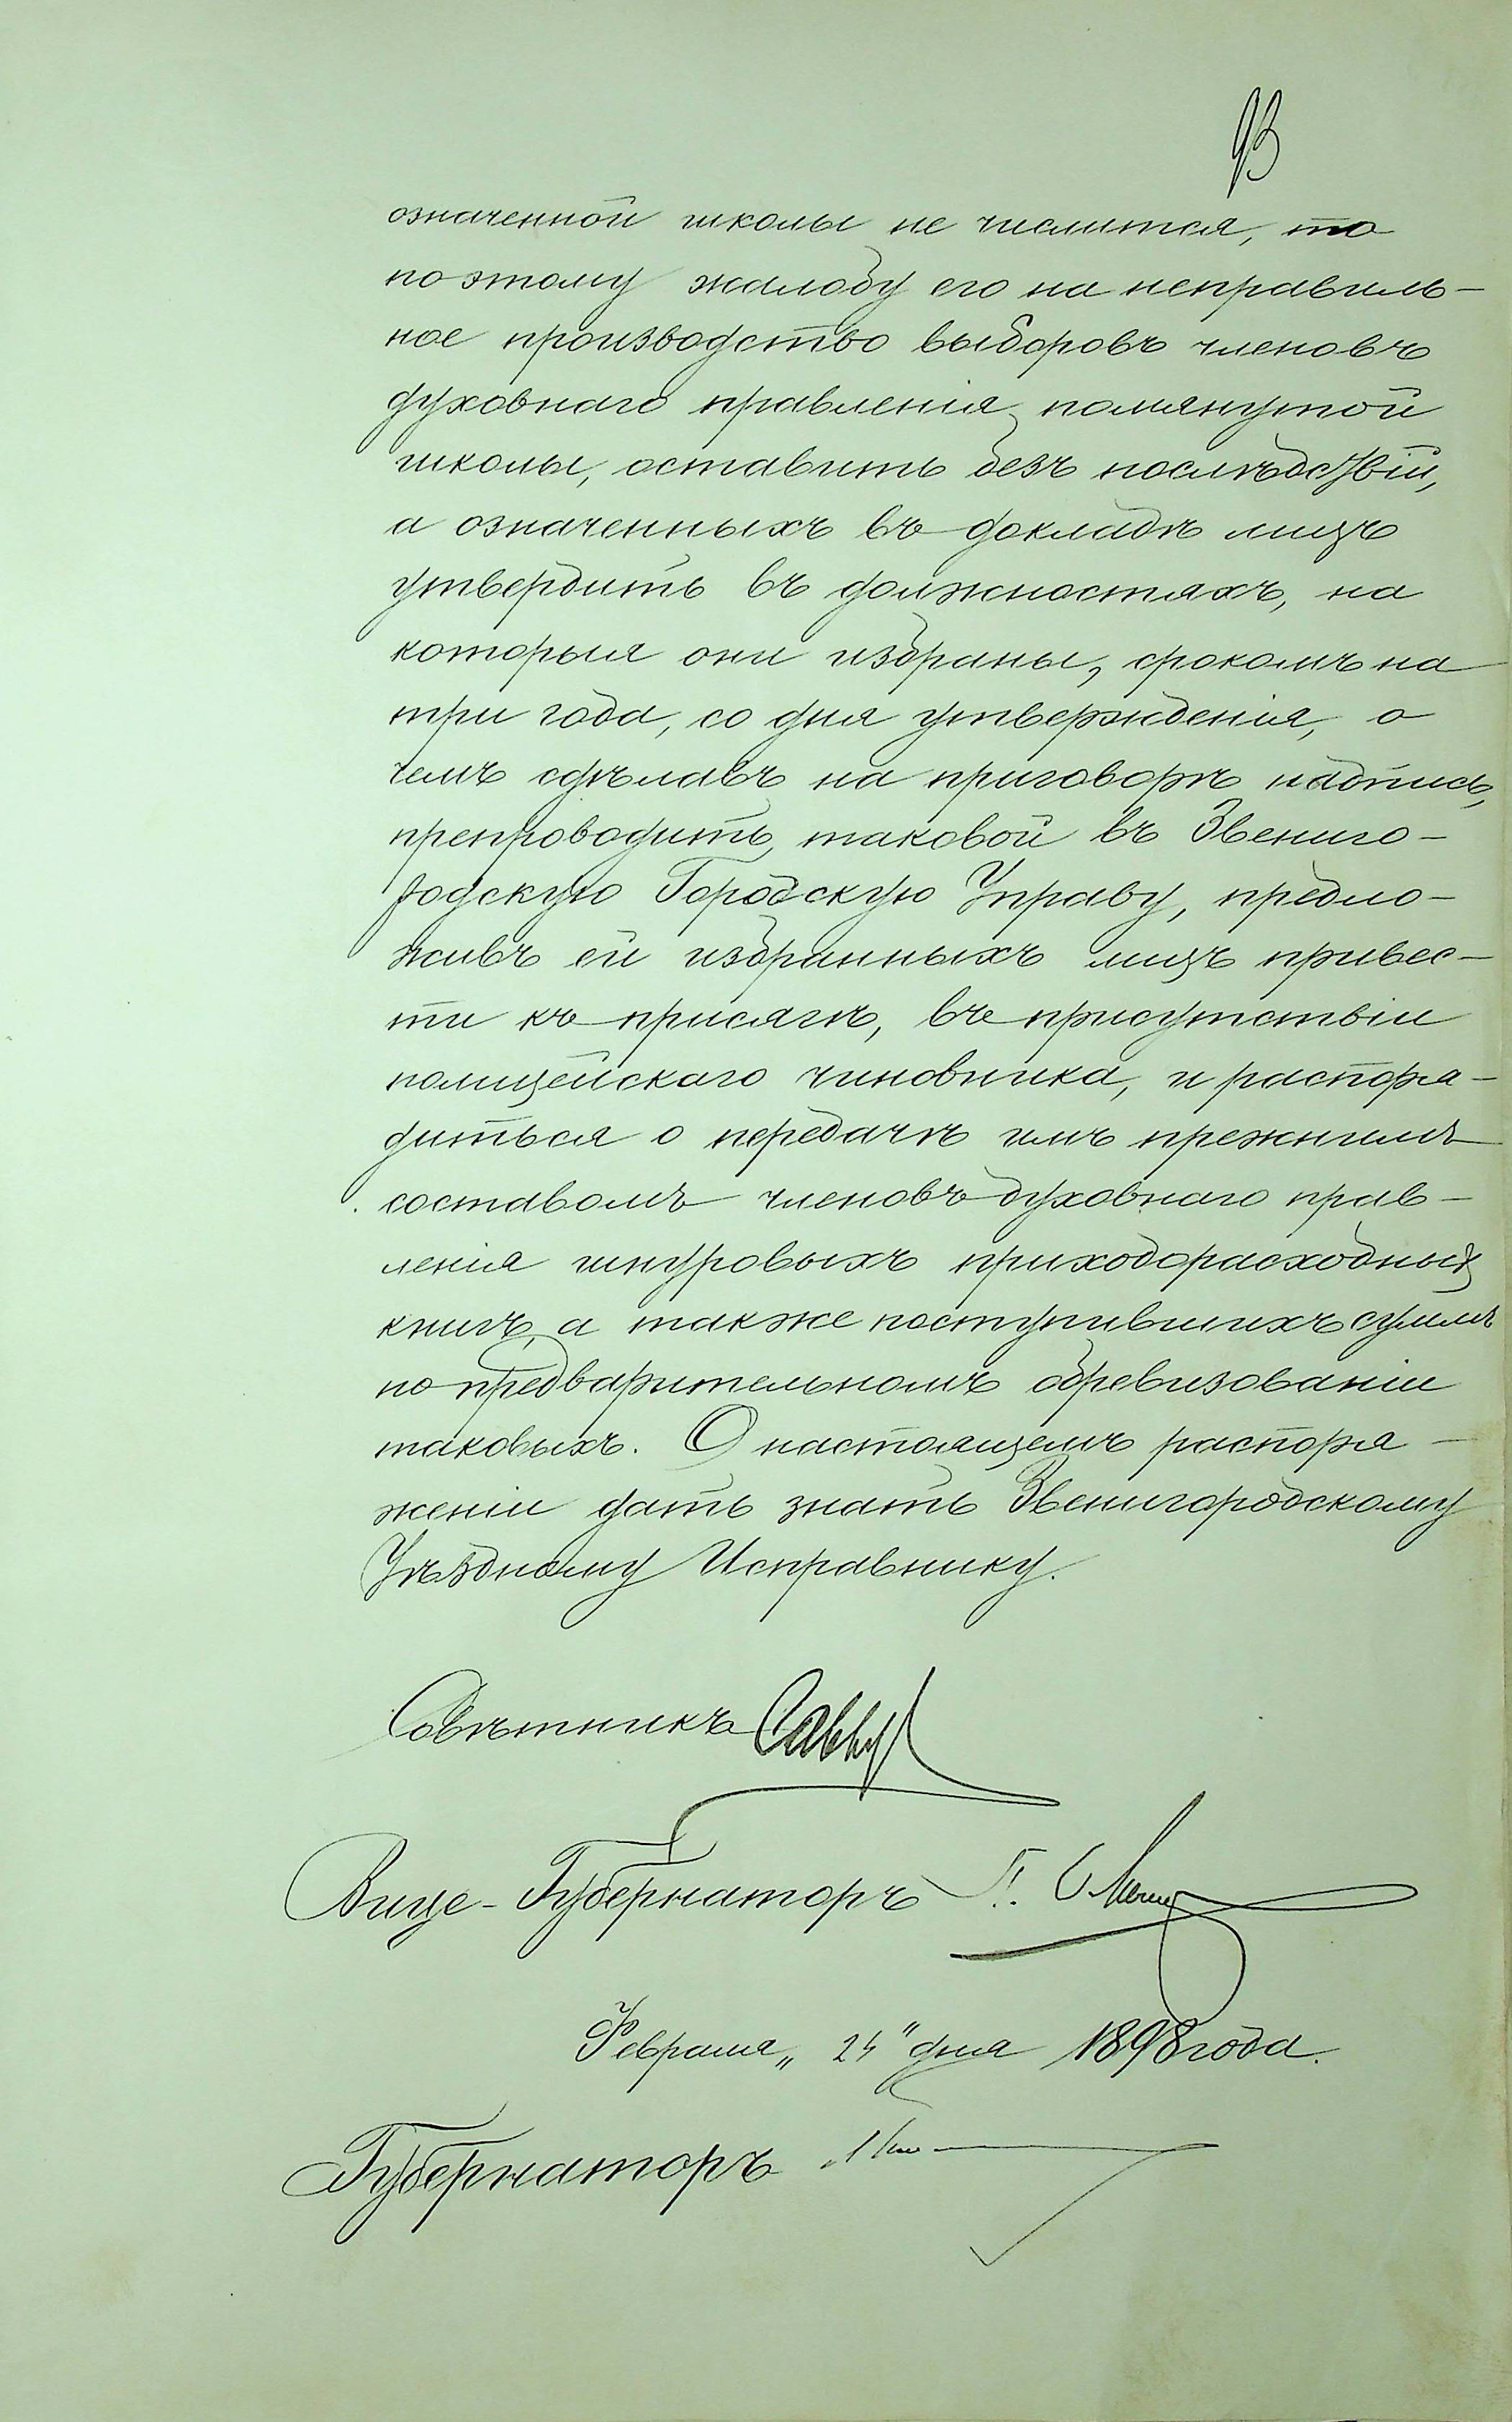 93
означенной школы не числится, то
по этому жалобу его на неправиль-
ное производство выборовъ членовъ
духовнаго правленія помянутой
школы, оставить безъ послѣдствій,
а означенныхъ въ докладѣ лицъ
утвердить въ должностяхъ, на
которыя они избраны, срокомъ на
три года, со дня утвержденія, о
чемъ сдѣлавъ на приговорѣ надпись,
препроводить таковой въ Звениго-
родскую Городскую Управу, предло-
живъ ей избранныхъ лицъ привес-
ти къ присягѣ, въ присутствіи
полицейскаго чиновника, и распоря-
диться о передачѣ имъ прежнимъ
составомъ членовъ духовнаго прав-
ленія шнуровыхъ приходорасходныхъ
книгъ, а также поступившихъ суммъ
по предварительномъ обревизованіи
таковыхъ. О настоящемъ распоря-
женіи дать знать Звенигородскому
Уѣздному Исправнику.
Совѣтникъ
Вице-Губернаторъ
Февраля „24" дня 1898 года.
Губернаторъ